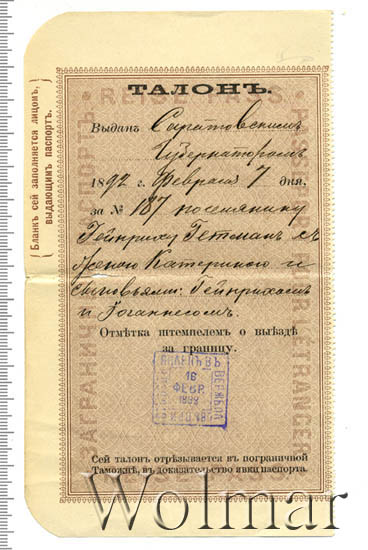 Бланкъ сей заполняется лицомъ,
выдающимъ паспортъ.
ТАЛОНЪ.
REISE-PASS
Выданъ Саратовскимъ
Губернаторомъ
1892 г. Февраля 7 дня,
за № 187 поселянину
Гейнриху Гетманъ съ
женою Катериною и
сыновьями: Гейнрихомъ
и Іоганнесомъ.
Отмѣтка штемпелемъ о выѣздѣ
за границу.
16
ФЕВР.
Сей талонъ отрѣзывается въ пограничной
Таможнѣ, въ доказательство явки паспорта.
Wolmar